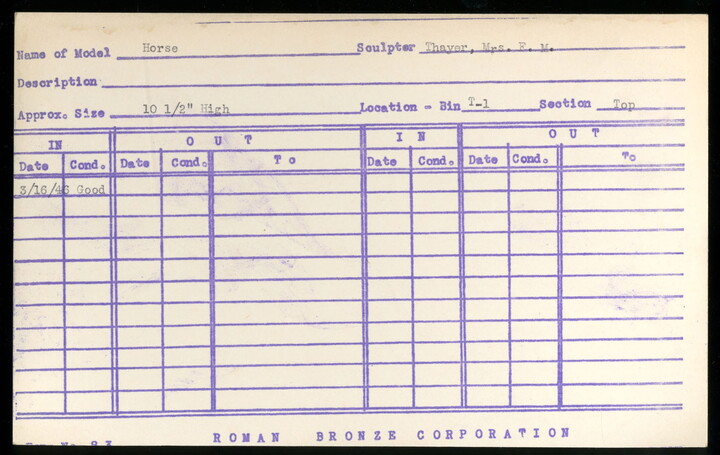 Name of Model Horse Sculpter Thayer, Mrs. E. M.
Description
Approx. Size 10 1/2" High Location - Bin T-1 Section Top
IN OUT IN OUT
Date Cond. Date Cond. To Date Cond. Date Cond. To
3/16/46 Good
ROMAN BRONZE CORPORATION